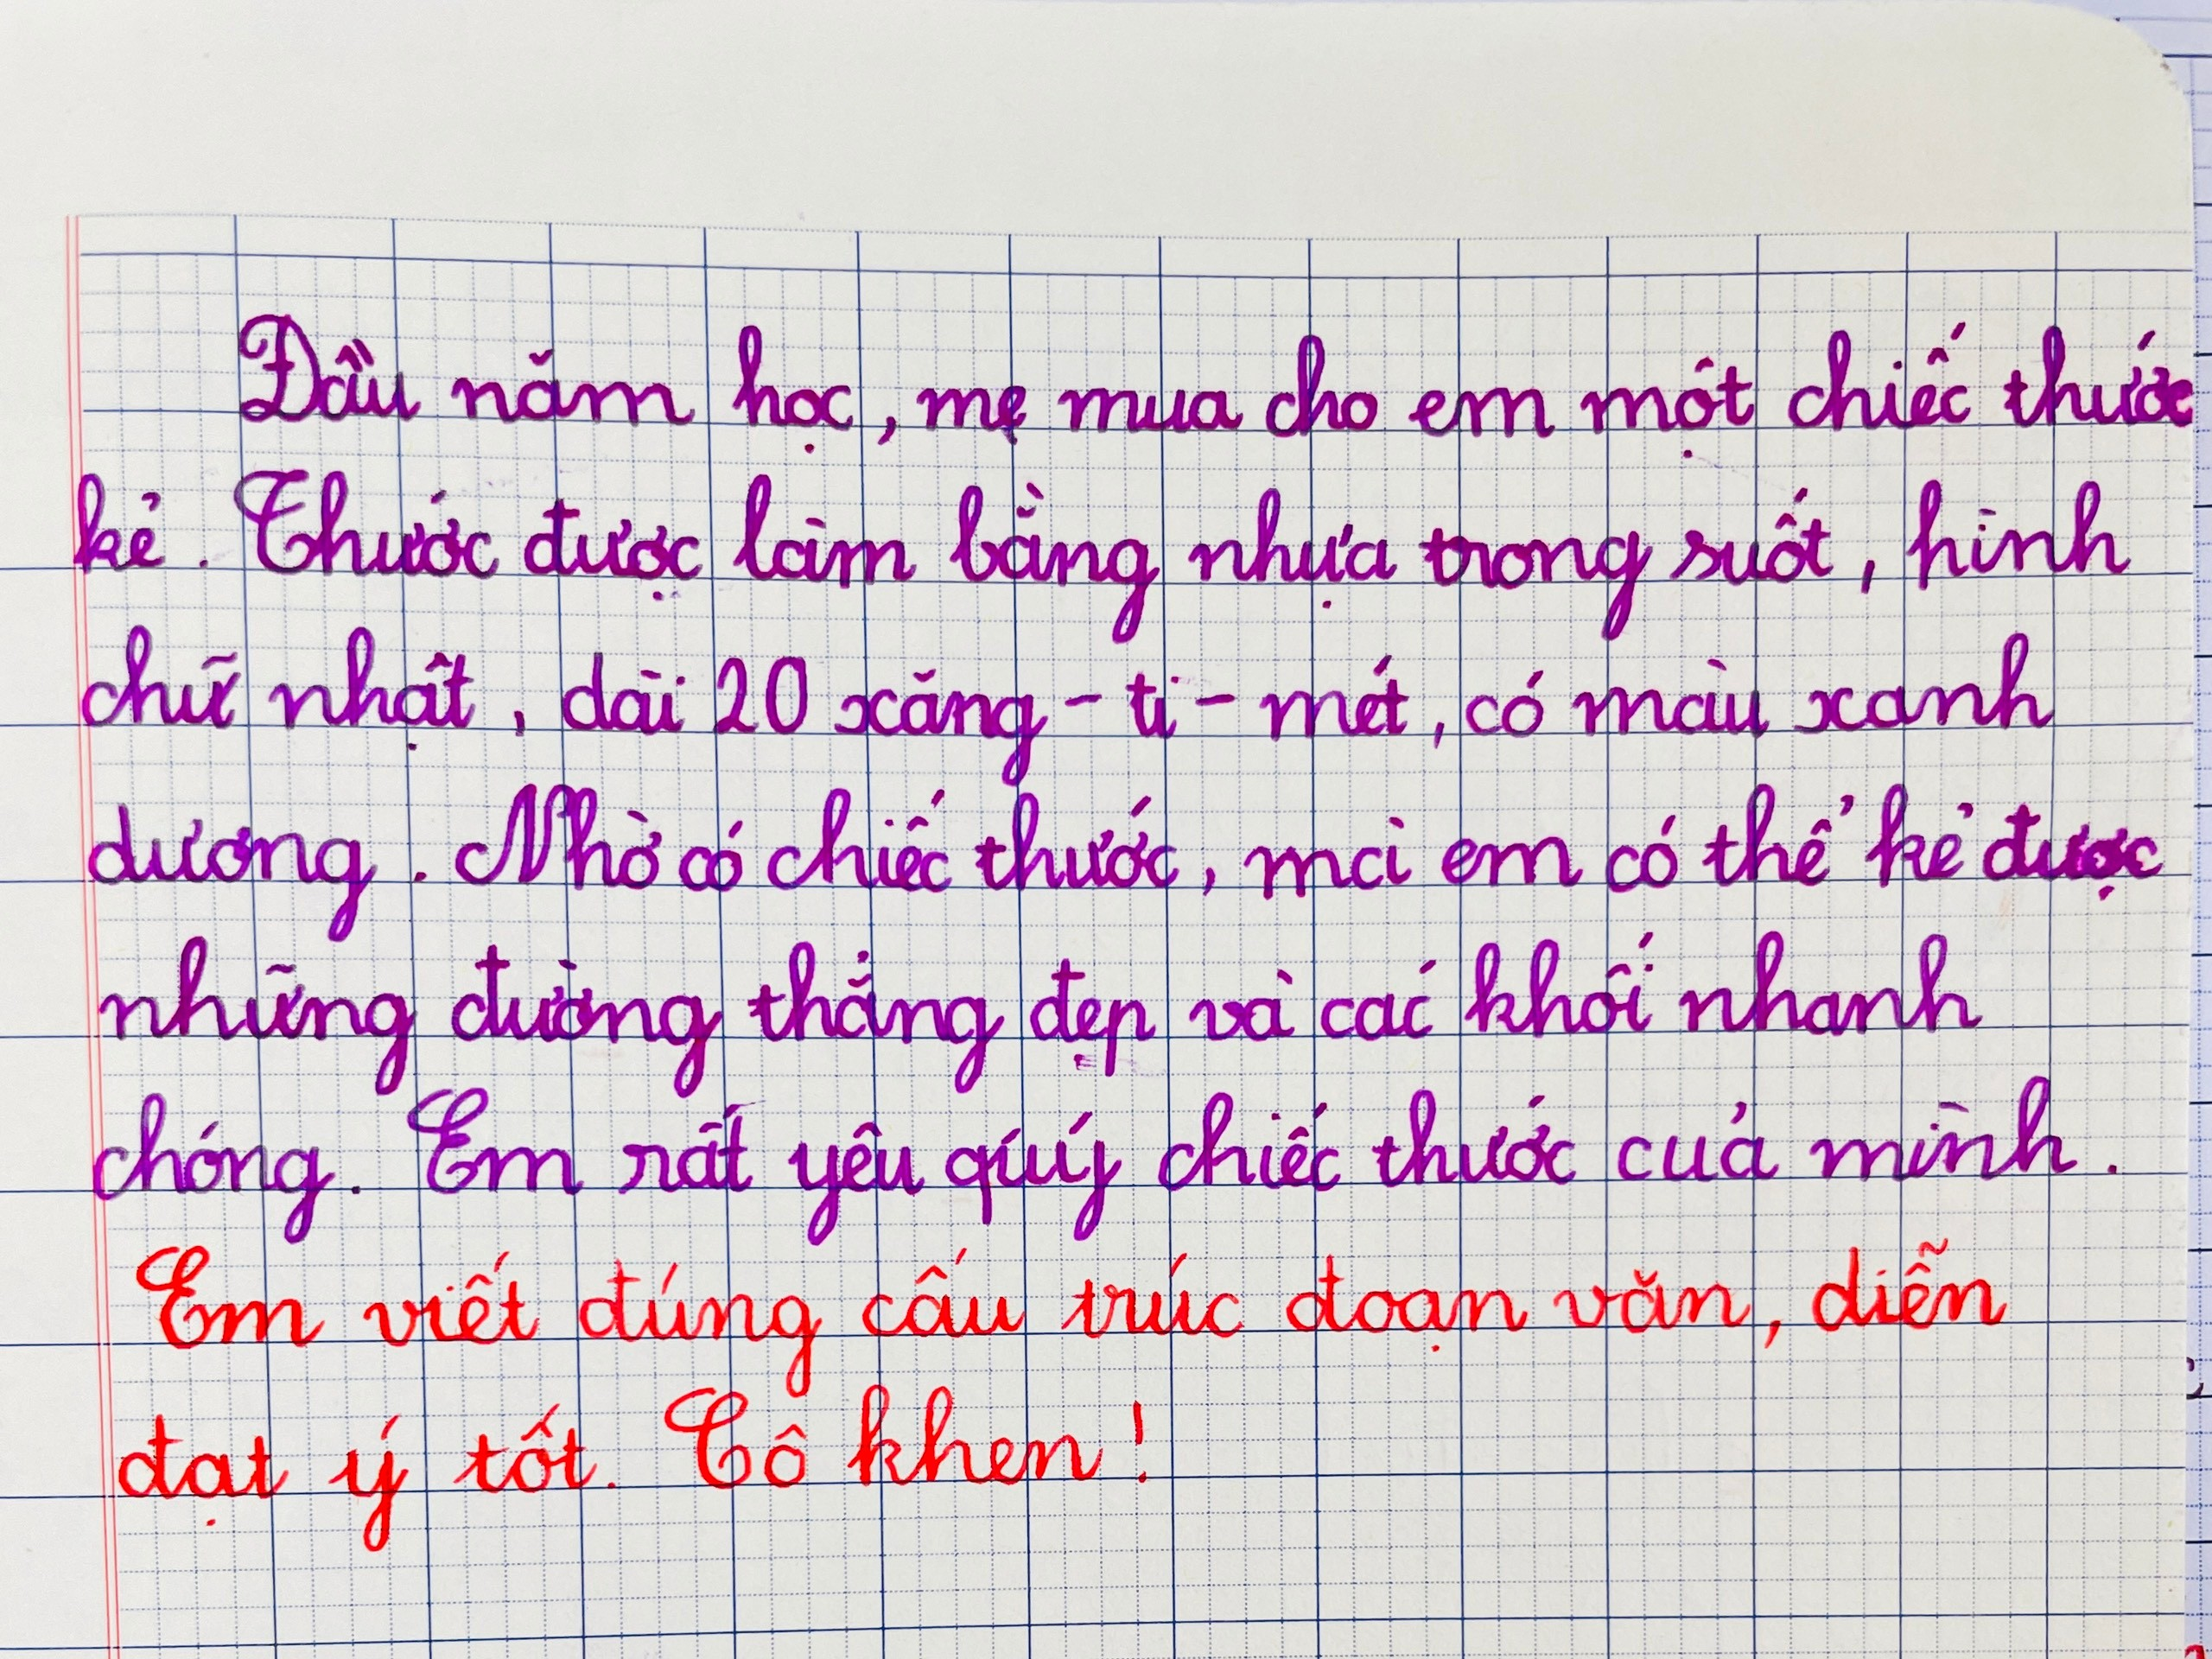 Đầu năm học, mẹ mua cho em một chiếc thước
kẻ. Thước được làm bằng nhựa trong suốt, hình
chữ nhật, dài 20 xăng-ti-mét, có màu xanh
dương. Nhờ có chiếc thước, mà em có thể kẻ được
những đường thẳng đẹp và các khối nhanh
chóng. Em rất yêu qúy chiếc thước của mình.
Em viết đúng cấu trúc đoạn văn, diễn
đạt ý tốt. Cô khen!